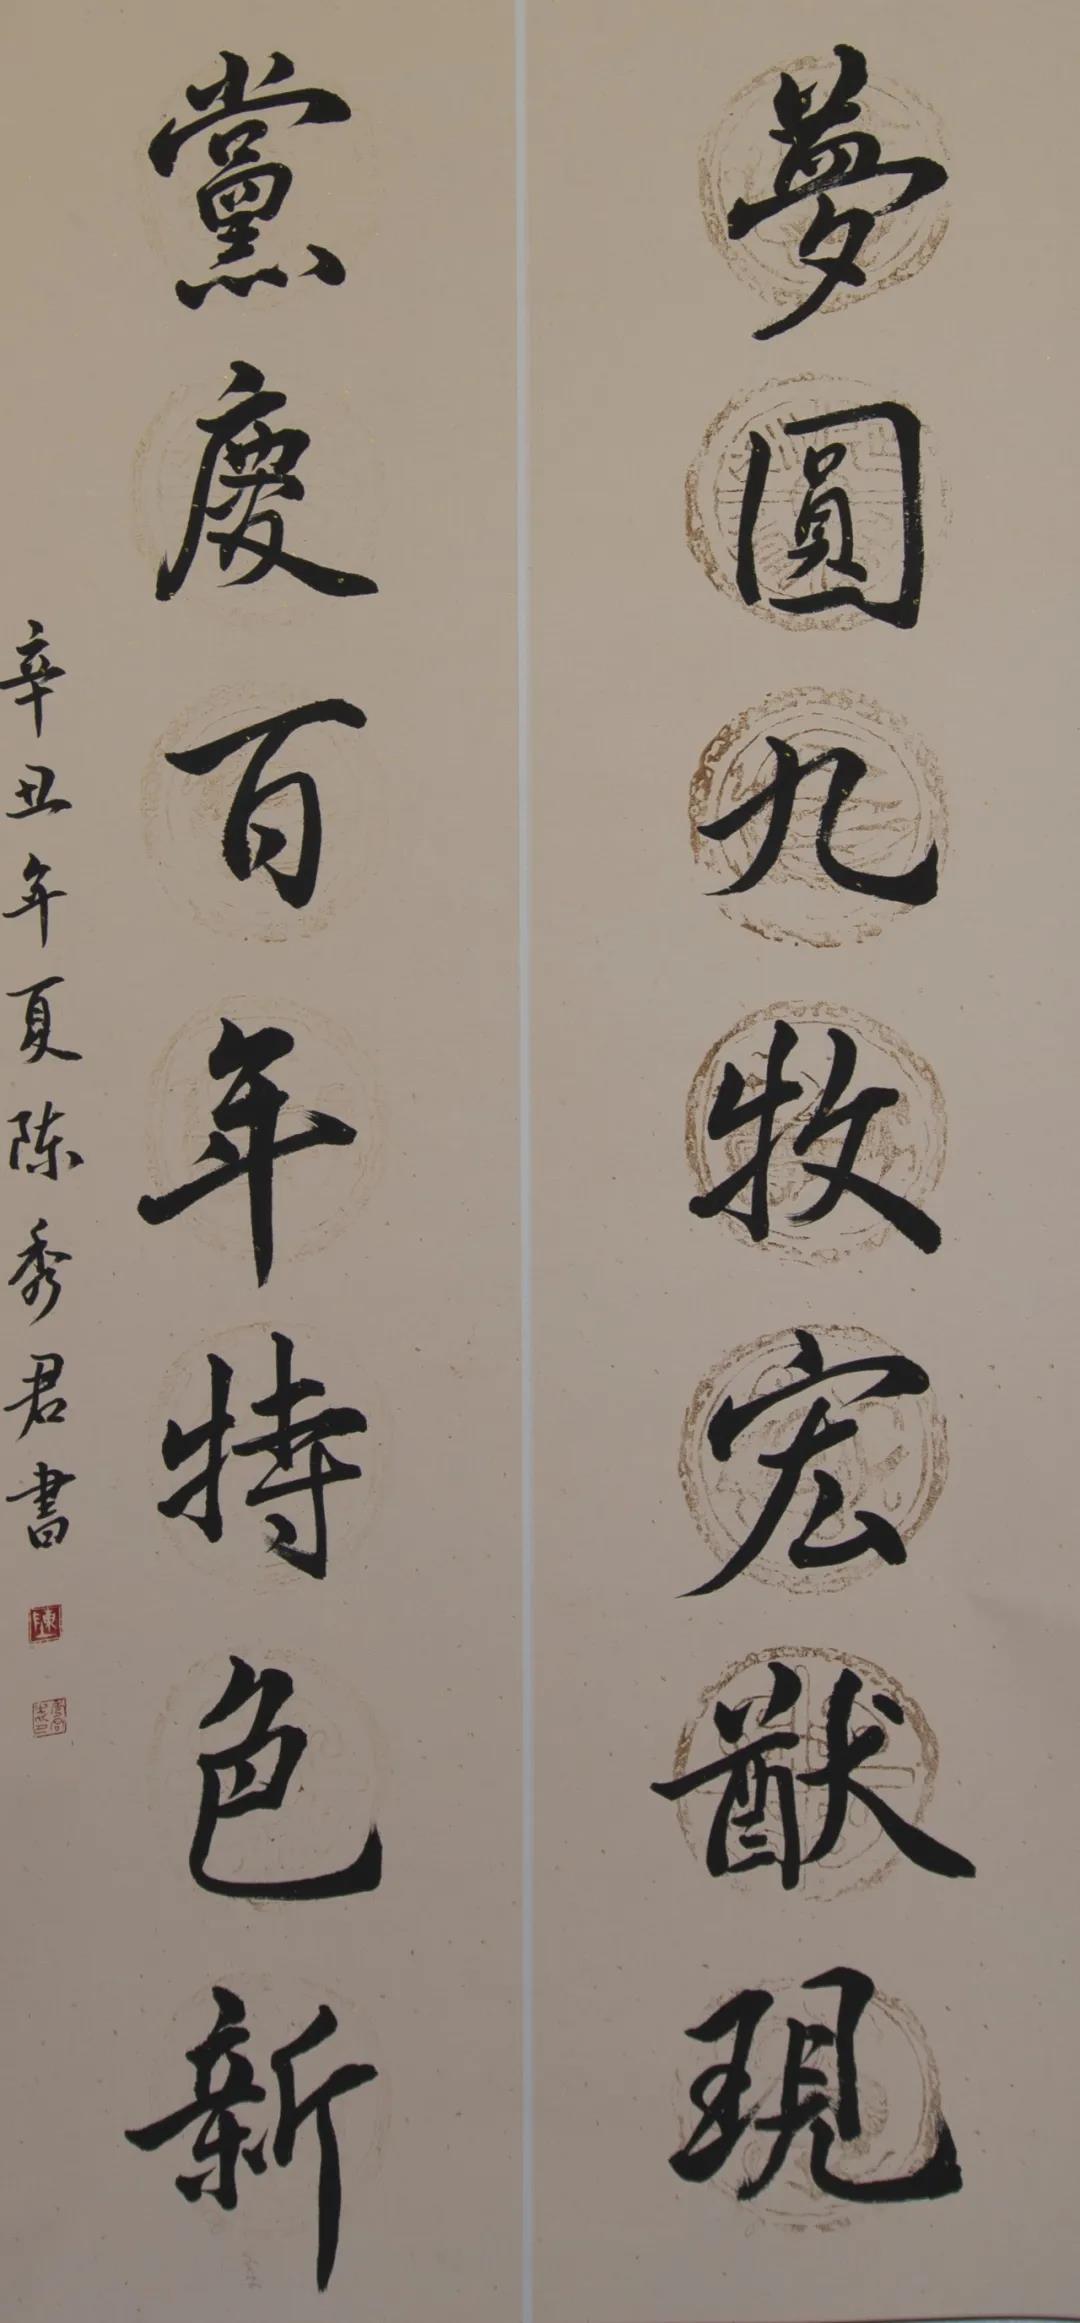 夢圓九牧宏猷現
黨慶百年特色新
辛丑年夏陈秀君書
陳